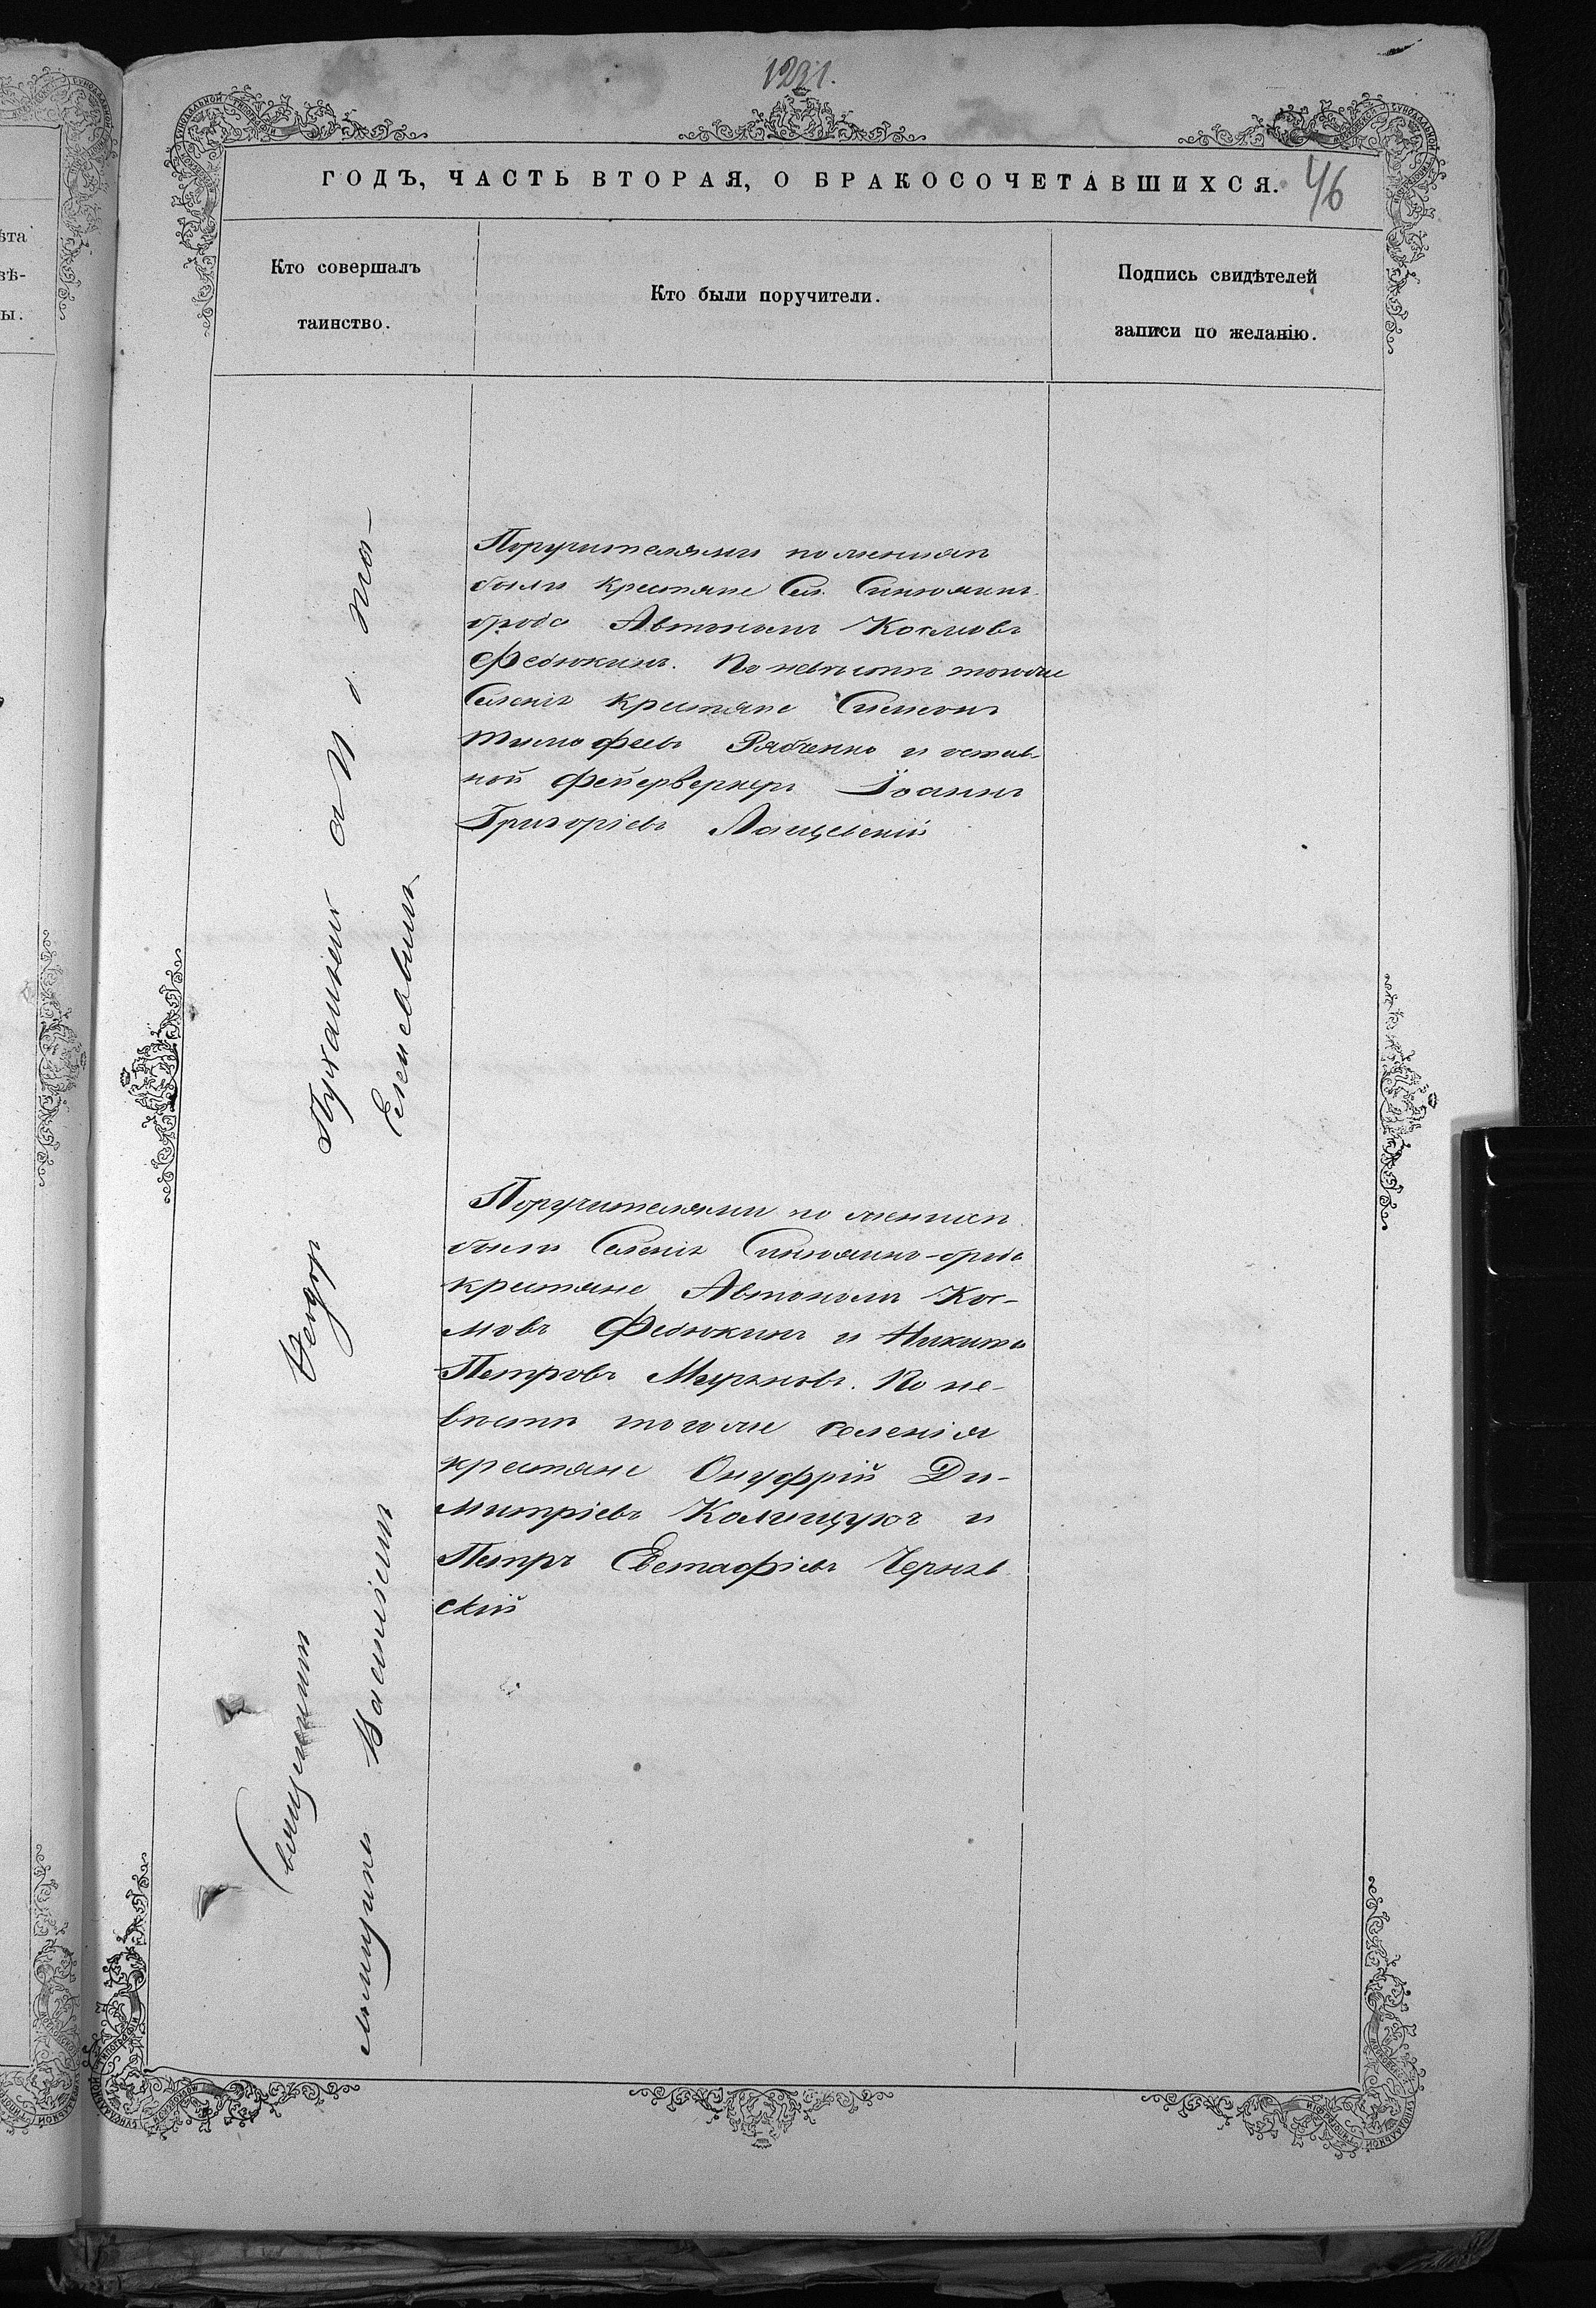 1221.
ГОДЪ, ЧАСТЬ ВТОРАЯ, О БРАКОСОЧЕТАВШИХСЯ.
46
Кто совершалъ
таинство.
Кто были поручители.
Подпись свидѣтелей
записи по желанію.
Священникъ Ѳеодоръ Пухальскій съ И. д. пса-
ломщика Василіемъ
Поручителями по женихѣ
были крестяне Сел. Синюхинъ
брода Автономъ Космовъ
Федюкинъ. По невѣстѣ тогоже
Селенія крестяне Симеонъ
Тимофеевъ Рябченко и остав-
ной фейерверкеръ Іоаннъ
Григоріевъ Лащевскій
Поручителями по женихѣ
были Селенія Синюхинъ-брода
крестяне Автономъ Кос-
мовъ Федюкинъ и Никита
Петровъ Мурзновъ. По не-
вѣстѣ тогоже селенія
крестяне Онуфрій Ди-
митріевъ Калищукъ и
Петръ Евстафіевъ Чернев
скій